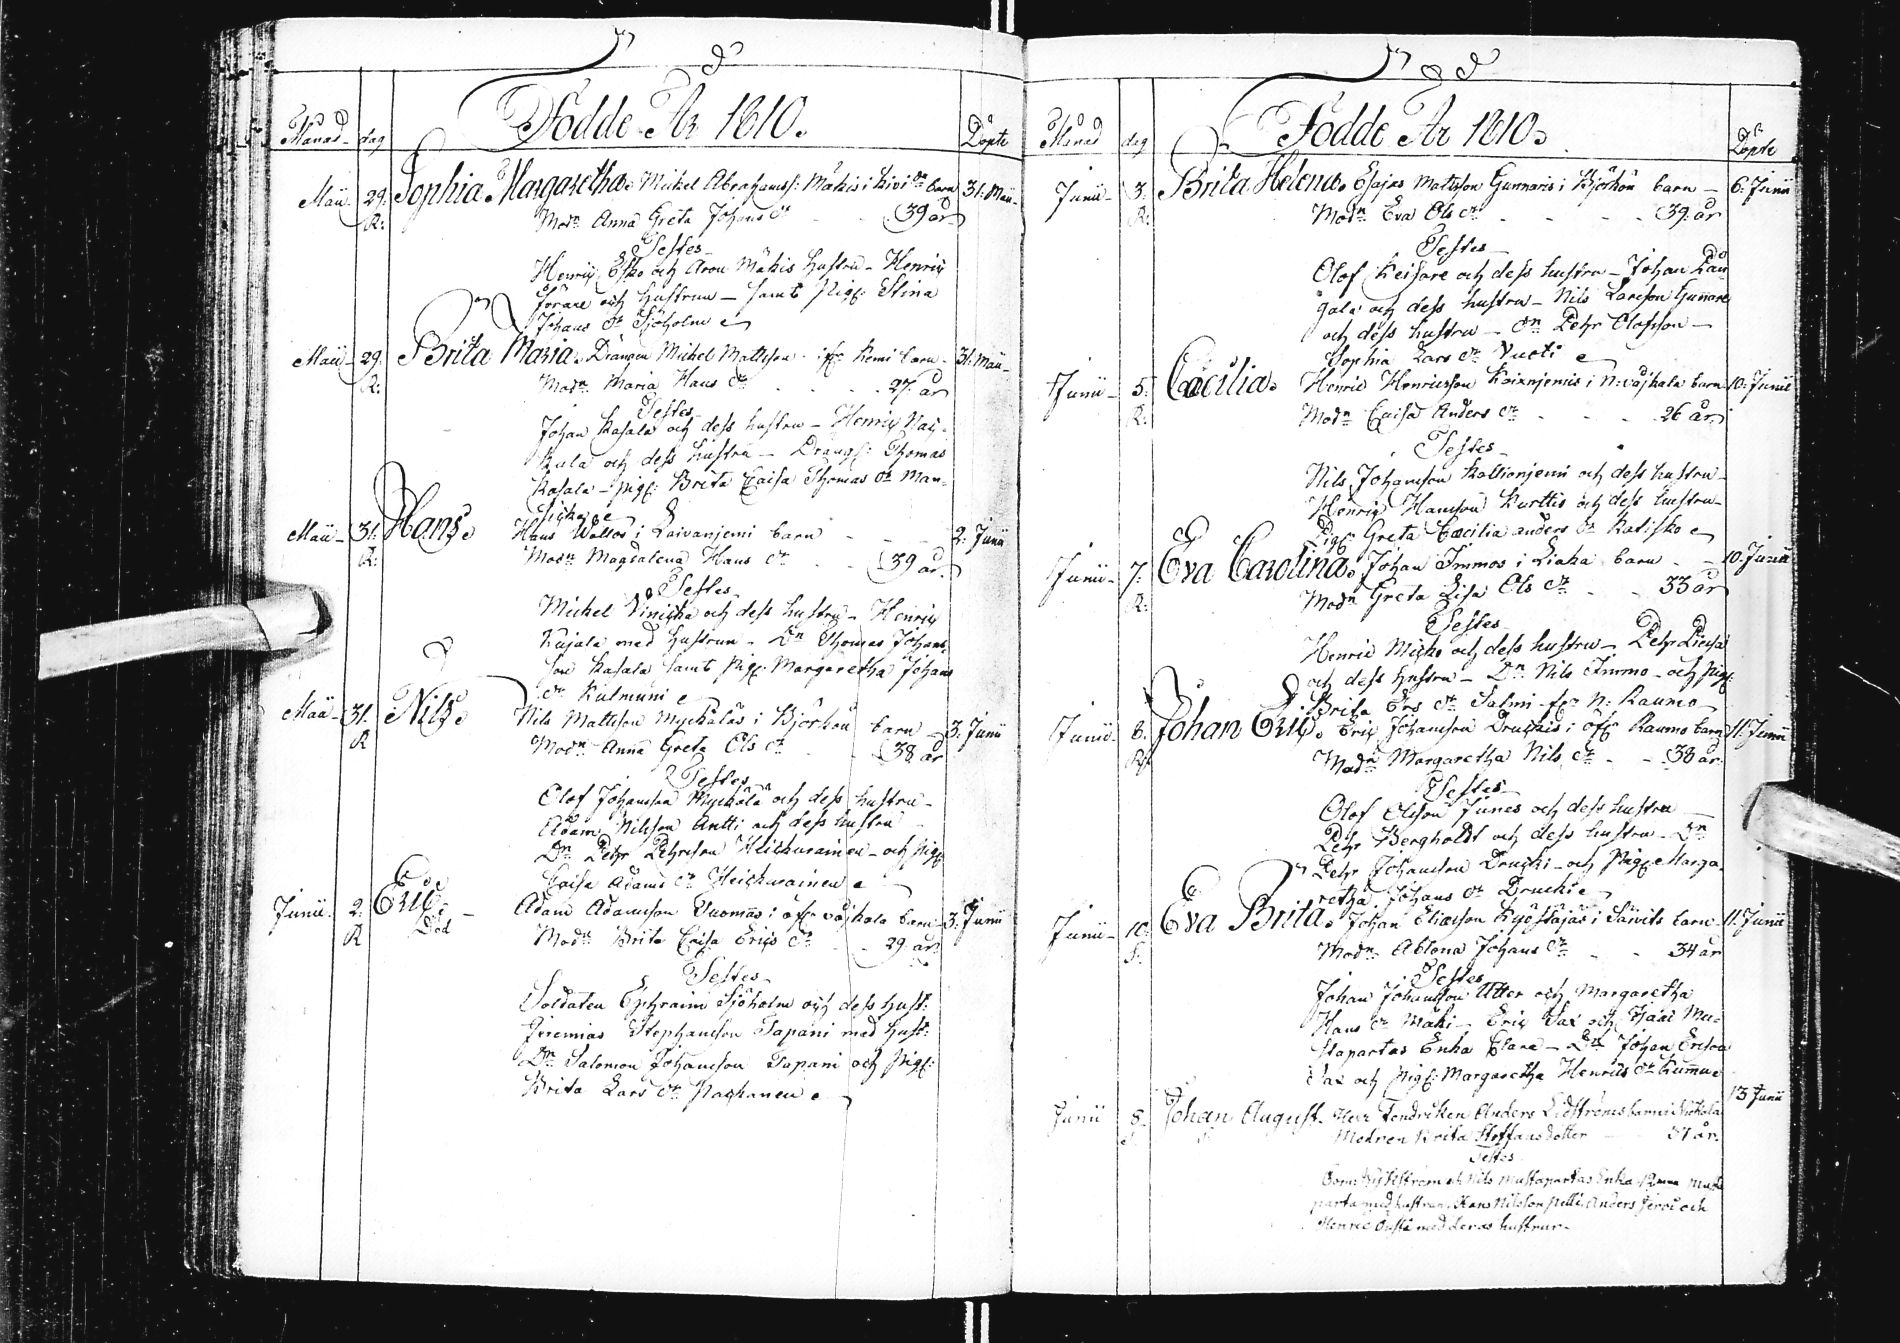 Födde År 1810.
Månad dag Döpte
Maii 29. Sophia Margaretha. Michel Abrahamss: Mäkis i Kivi barn 31: Maii
R: Modn Anna Greta Johans dr 39 år
Testes
Henrich Esko och Aron Mäkis hustru - Henrich
Förare och hustrun - samt Pig: Stina
Johans dr Sjöholm
Maii 29. Brita Maria. Drängen Michel Mattsson i Kemi barn 31: Maii
R: Modn Maria Hans dr 27. år
Testes
Johan Rasala och dess hustru - Henrich Nay-
kula och dess hustru - Drängs: Thomas
Rasala - Pig: Brita Caisa Thomas dr Man-
Maii 31. Hans. Hans Wallos i Laivanjemi barn 2: Junii
R: Modn Magdalena Hans dr 39 år.
Testes
Michel och dess hustru - Henrich
Kujala med hustrun - Dn Thomas Johans-
son Rasala samt Pig: Margaretha Johans
dr Kulmuni
Maii 31. Nils. Nils Mattsson Myckäläs i Björkön barn 3: Junii
R Modn Anna Greta Ols dr 38 år
Testes
Olof Johansson Myckälä och dess hustru -
Adam Nilsson Antti och dess hustru
Dn Petr Petrsson Heickurainen - och Pig:
Caisa Adams dr Heickurainen
Junii 2. Eric. Adam Adamsson Tuomas i öfr Vojkala barn 3: Junii
R Död Modn Brita Caisa Erics dr 29. år
Testes
Soldaten Ephraim Sjöholm och dess hust:
Jeremias Stephansson Tapani med hust:
Dn Salomon Johansson Tapani och Pig:
Brita Lars dr
Födde År 1810.
Månad dag Döpte
Junii 3. Brita Helena. Esajas Mattsson Gunnaris i Björkön barn 6: Junii
R: Modn Eva Ols dr 39. år
Testes
Olof Keisare och dess hustru - Johan Kau
gala och dess hustru - Nils Larsson Gunnare
och dess hustru - Dn Petr Olofsson -
Sophia Lars dr Vuoti
Junii 5. Cæcilia. Henric Henricsson i N: Vojkala barn 10: Junii
R: Modn Caisa Anders dr 26 år
Testes
Nils Johansson Kallionjemi och dess hustru -
Henrich Hansson Kurttio och dess hustru -
Pig: Greta Cæcilia Anders dr Katisko
Junii 7. Eva Carolina. Johan Immos i Liaka barn 10: Junii
R: Modn Greta Lisa Ols dr 33 år
Testes
Henric Micko och dess hustru - Petr
och dess hustru - Dn Nils Immo - och Pig:
Brita Ers dr Salmi fr N: Raumo
Junii 8. Johan Eric. Eric Johansson Druckis i öfr Raumo barn 11: Junii
R. Modn Margaretha Nils dr 38 år.
Testes
Olof Olsson Junes och dess hustru
Petr Bergholdt och dess hustru - Dn
Petr Johansson Drucki - och Pig: Marga-
retha Johans dr Drucki
Junii 10. Eva Brita. Johan Eliasson Kyöstäjäs i Säivits barn 11: Junii
S. Modn. Ablona Johans dr 34 år
Testes
Johan Johansson Utter och Margaretha
Hans dr Mäki - Eric Vax och Mu-
stapartas Enka Clara - Dn Johan Ersson
Vax och Pig: Margaretha Henrics dr Kumma
Junii 8. Johan August. Herr Fendriken Anders Lidströms barn i Nickala 13 Junii
Modren Brita Steffansdotter 37 år.
Testes
och Nils Mustapartas Enka, Musta
parta med hustrun, Hans Nilsson Pelli, Anders och
Henric med deras hustrur.